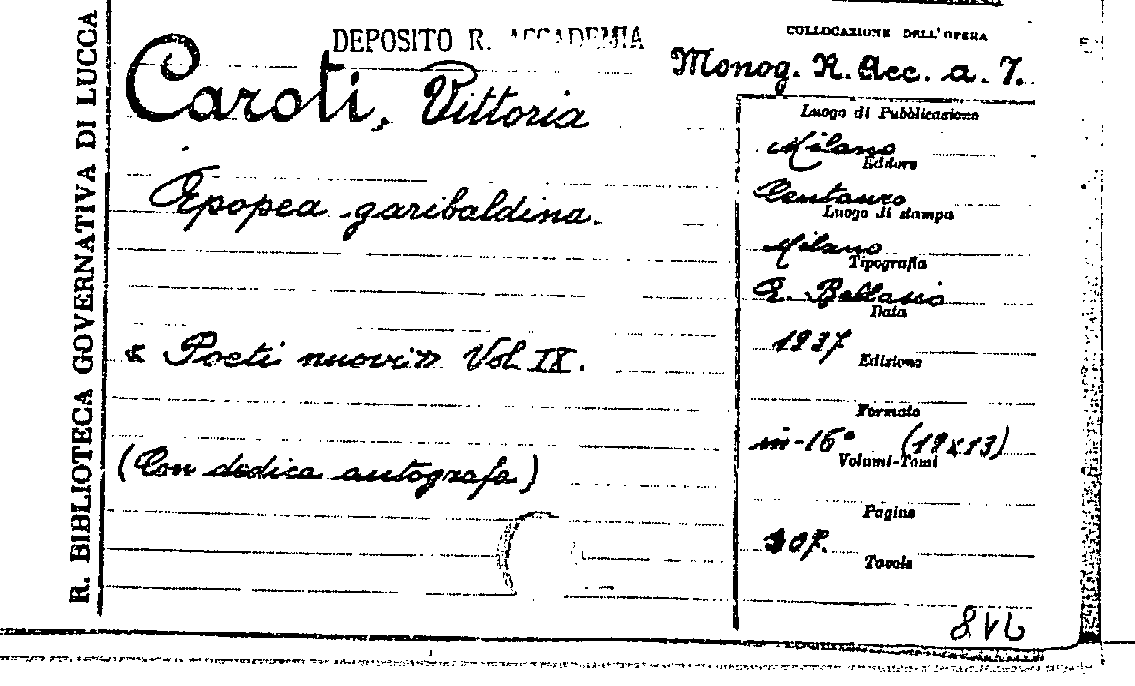 R. BIBLIOTECA GOVERNATIVA DI LUCCA
DEPOSITO R. ACCADEMIA
COLLOCAZIONE DELL'OPERA
Monog. R. Acc. a. 7.
Caroti, Vittoria
Epopea garibaldina.
« Poeti nuovi » Vol. IX.
(Con dedica autografa)
Luogo di Pubblicazione
Milano
Editore
Centauro
Luogo di stampa
Milano
Tipografia
Data
1937
Edizione
Formato
in-16° (19x13)
Volumi-Tomi
Pagine
107.
Tavole